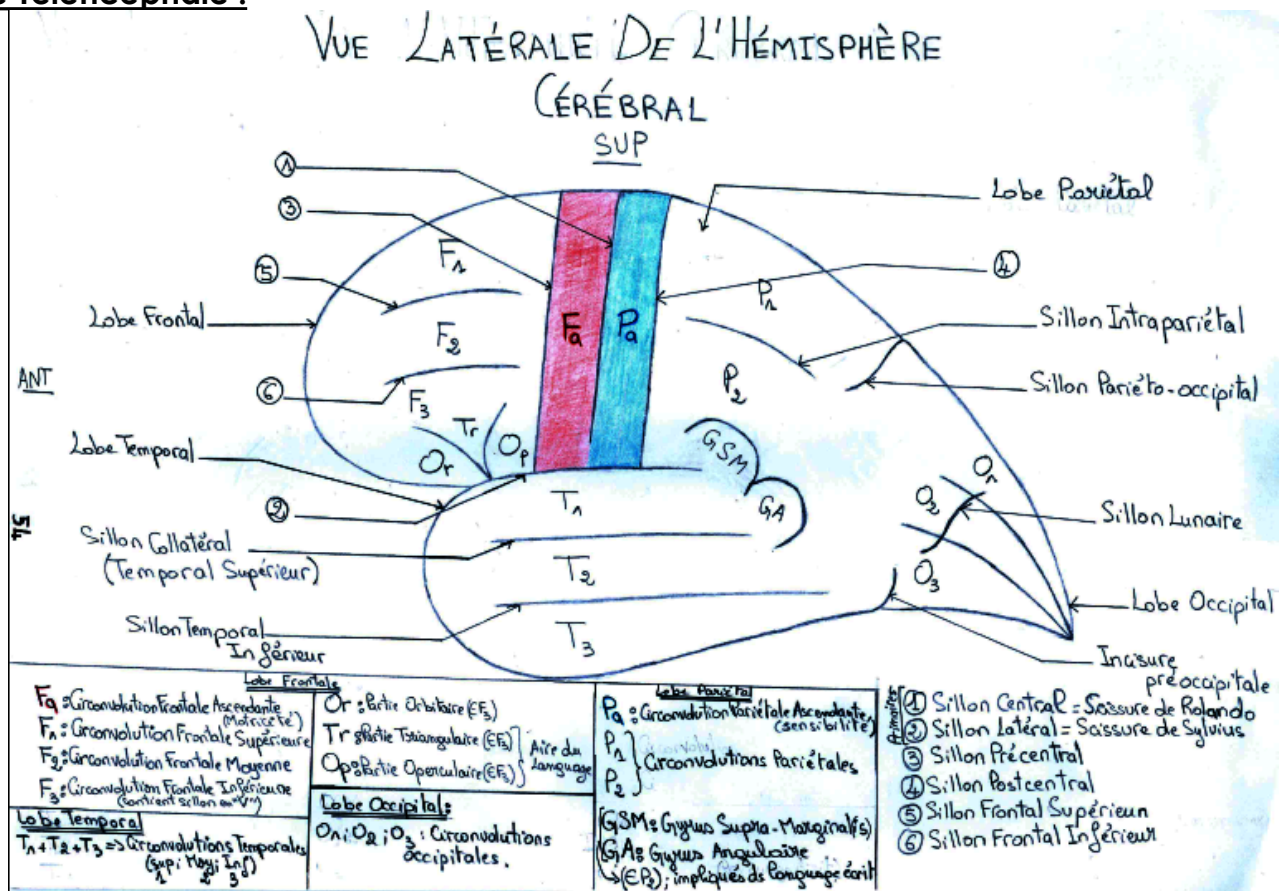 e Télencéphale :
VUE LATÉRALE DE L'HÉMISPHÈRE
CÉRÉBRAL
SUP
①
③
⑤
Lobe Frontal
ANT
⑥
Lobe Temporal
②
54
Sillon Collatéral
(Temporal Supérieur)
Sillon Temporal
Inférieur
F1
F2
F3
Tr
Or
Op
Fa
Pa
P1
P2
GSM
GA
T1
T2
T3
Or
O2
O3
Lobe Pariétal
④
Sillon Intrapariétal
Sillon Pariéto-occipital
Sillon Lunaire
Lobe Occipital
Incisure
préoccipitale
Lobe Frontale
Fa : Circonvolution Frontale Ascendante
(Motricité)
F1 : Circonvolution Frontale Supérieure
F2 : Circonvolution Frontale Moyenne
F3 : Circonvolution Frontale Inférieure
(contient sillon en "V")
Or : Partie Orbitaire (∈F3)
Tr : Partie Triangulaire (∈F3)
Op : Partie Operculaire (∈F3)
Aire du
Language
Lobe Temporal
T1+T2+T3 => Circonvolutions Temporales
(sup; Moy; Inf)
1 2 3
Lobe Occipital :
O1; O2; O3 : Circonvolutions
occipitales.
Lobe Pariétal
Pa : Circonvolution Pariétale Ascendante
(sensibilité)
P1
P2
Circonvolutions Pariétales
GSM : Gyrus Supra-Marginal(is)
GA : Gyrus Angulaire
↳(∈P2); impliqués ds Language écrit
① Sillon Central = Scissure de Rolando
② Sillon Latéral = Scissure de Sylvius
③ Sillon Précentral
④ Sillon Postcentral
⑤ Sillon Frontal Supérieur
⑥ Sillon Frontal Inférieur